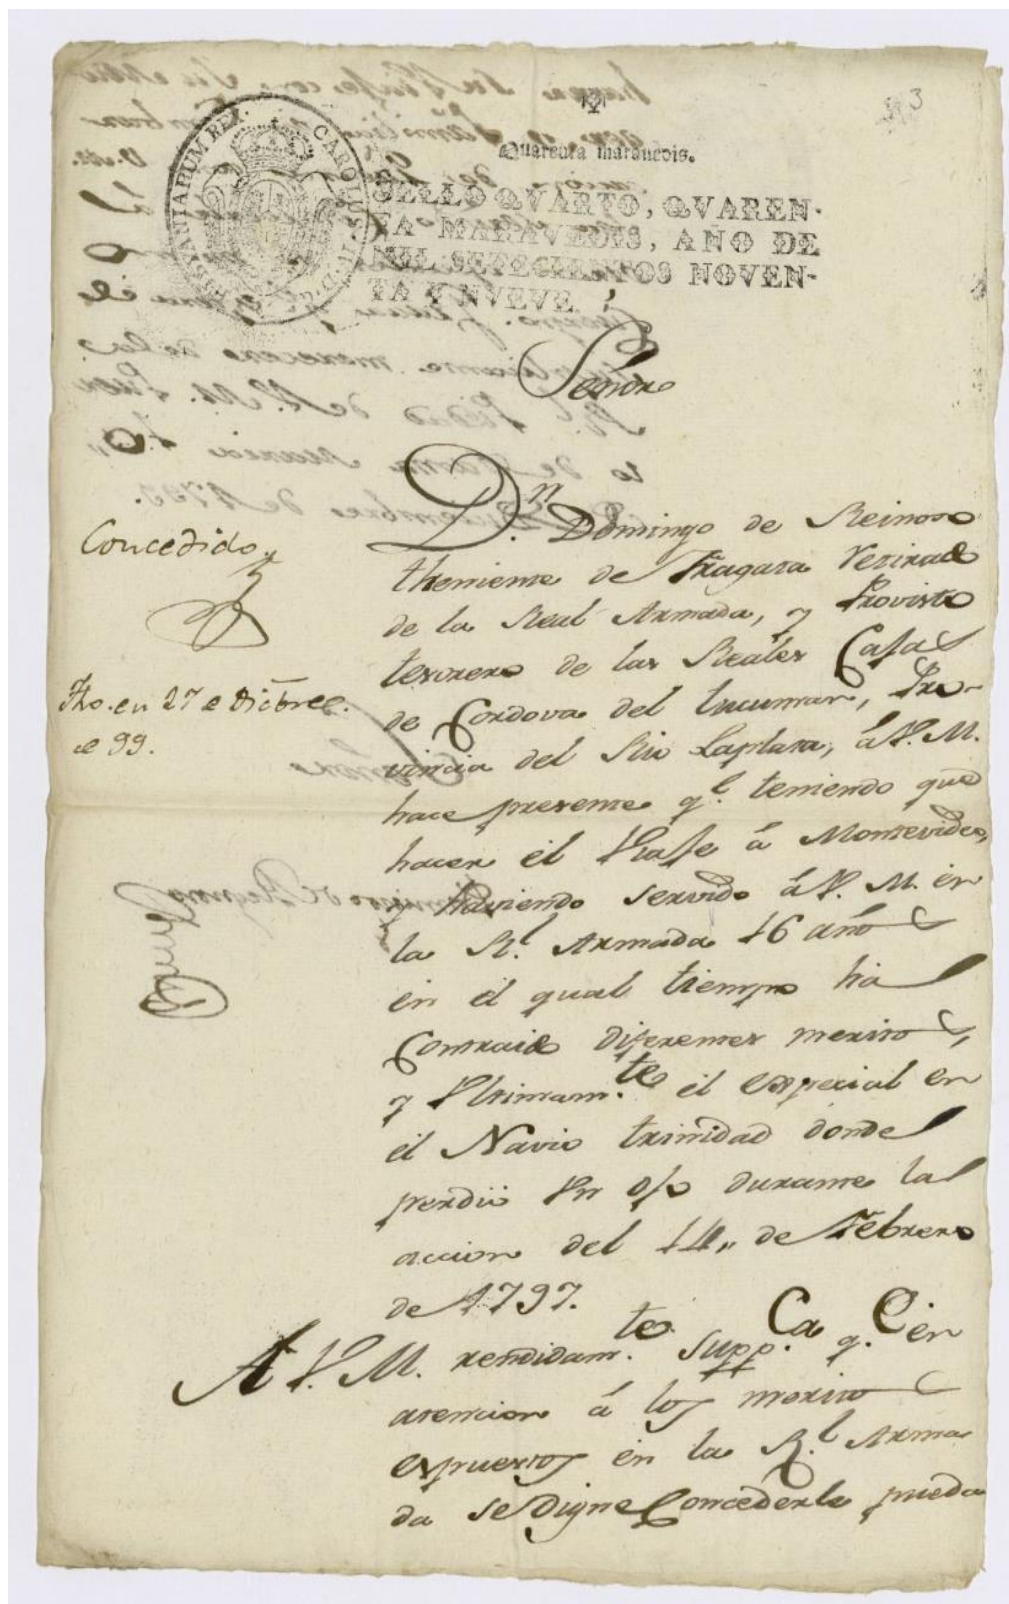 3
Quarenta marauedis.
SELLO QVARTO, QVAREN-
TA MARAVEDIS, AÑO DE
MIL SETECIENTOS NOVEN-
TA Y NVEVE.
HISPANIARUM REX. CAROLUS IV D. G.
Señor
Dn. Domingo de Reinoso
theniente de Fragata retirado
de la Real Armada, y Provisto
tesorero de las Reales Cajas
de Cordova del tucuman, Pro-
vincia del Rio Laplata, á V. M.
hace presente ql. teniendo que
hacer el Viaje á Montevideo,
y haviendo servido á V. M. en
la Rl. Armada 16 años
en el qual tiempo ha
Contraido diferentes meritos,
y Ultimamte. el especial en
el Navio trinidad donde
perdió Un ojo durante la
accion del 14,, de Febrero
de 1797.
A V. M. rendidamte. suppca. qe. en
atencion á los meritos
espuestos en la Rl. Arma
da se digne Concederle pueda
Concedido
Fho. en 27 de Dicbre.
de 99.